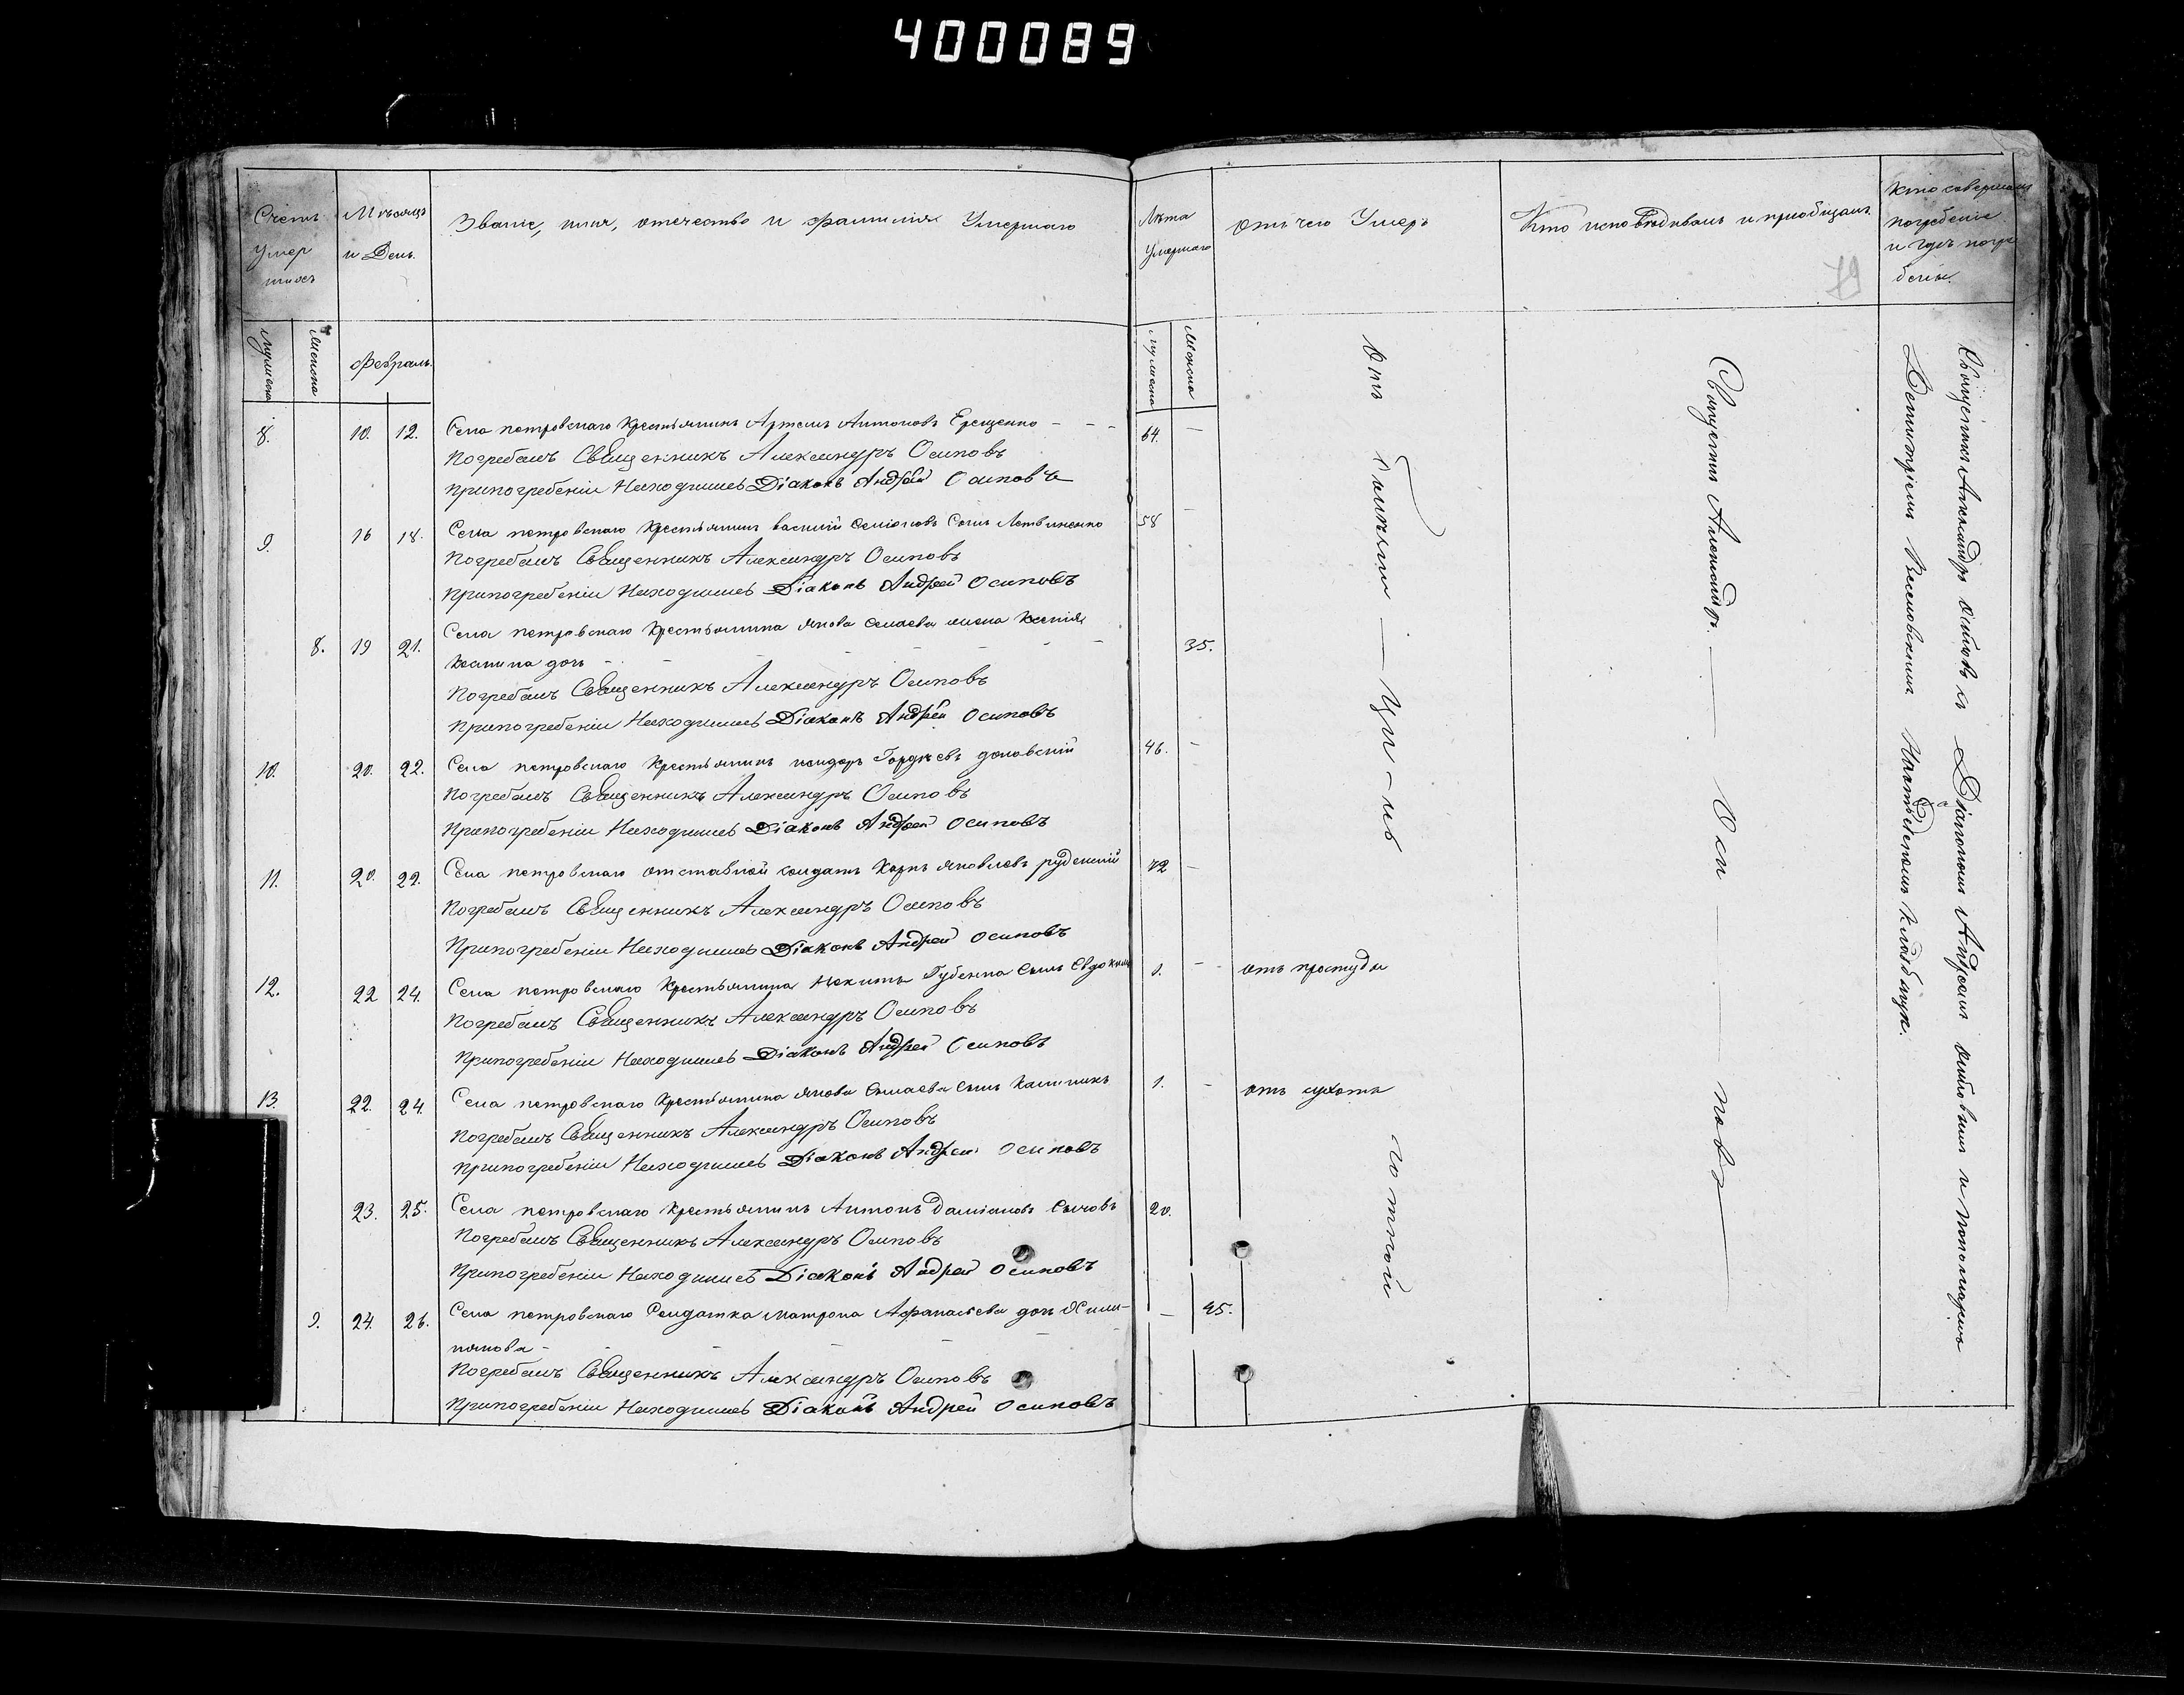 400089
Счетъ Умер шихъ
Мѣсяцъ и День.
Званіе, имя, отечество и фамилія Умершаго
Лѣта Умершаго
отъ чего Умеръ
Кто исповѣдивалъ и пріобщалъ.
Кто совершалъ погребеніе и гдѣ погре бены.
79
мужеска
женска
Февраль.
мужеска
женска
8. 10. 12. Села петровскаго Крестьянинъ Артемъ Антоновъ Ерещенко - - - 64. -
Погребалъ Священникъ Александръ Осиповъ
При погребеніи Находился Діаконъ Андрей Осиповъ
9. 16 18. Села петровскаго Крестьянинъ василій Семіоновъ Сынъ Летвиненко 58 -
Погребалъ Священникъ Александръ Осиповъ
При погребеніи Находился Діаконъ Андрей Осиповъ
8. 19 21. Села петровскаго Крестьянина якова жена Ксенія 35.
дочь -
Погребалъ Священникъ Александръ Осиповъ
При погребеніи Находился Діаконъ Андрей Осиповъ
10. 20. 22. Села петровскаго Крестьянинъ Гордѣевъ 46. -
Погребалъ Священникъ Александръ Осиповъ
При погребеніи Находился Діаконъ Андрей Осиповъ
11. 20. 22. Села петровскаго отставной солдатъ Карпъ яковлевъ рудскій 72 -
Погребалъ Священникъ Александръ Осиповъ
При погребеніи Находился Діаконъ Андрей Осиповъ
12. 22 24. Села петровскаго Крестьянина Никиты Губенка Сынъ Евдокимъ 1. - отъ простуды
Погребалъ Священникъ Александръ Осиповъ
При погребеніи Находился Діаконъ Андрей Осиповъ
13. 22. 24. Села петровскаго Крестьянина якова Сынъ Калинникъ 1. - отъ сухоты
Погребалъ Священникъ Александръ Осиповъ
При погребеніи Находился Діаконъ Андрей Осиповъ
23. 25. Села петровскаго Крестьянинъ Антонъ Даміановъ Сычовъ 20.
Погребалъ Священникъ Александръ Осиповъ
При погребеніи Находился Діаконъ Андрей Осиповъ
9. 24. 26. Села петровскаго Солдатка матрона Афанасьева дочь - 45.
Погребалъ Священникъ Александръ Осиповъ
При погребеніи Находился Діаконъ Андрей Осиповъ
отъ болѣзни — цы - нъ готной
Священникъ Александръ — Оси — повъ —
Священникъ Александръ Осиповъ съ Діакономъ Андреемъ Осиповымъ и Пономаремъ
Димитріемъ На кладбищѣ.